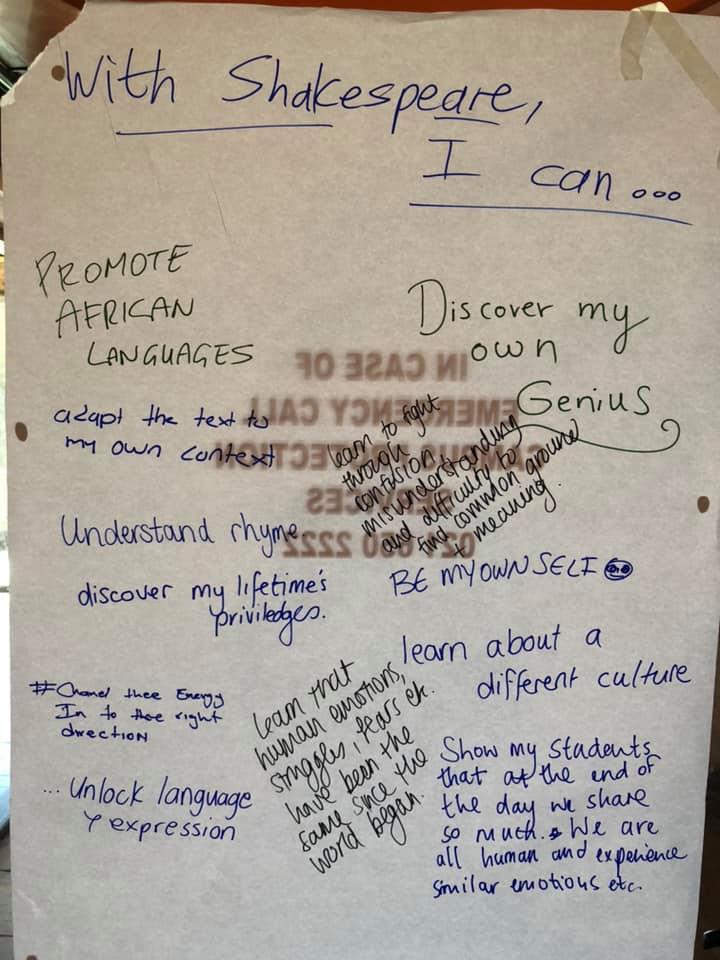 With Shakespeare,
I can...
PROMOTE
AFRICAN
LANGUAGES
Discover my
own
Genius
IN CASE OF
EMERGENCY CALL
CAMPUS PROTECTION
SERVICES
2222
adapt the text to
my own context
learn to fight
through
confusion,
misunderstanding
and difficulty to
find common ground
+ meaning.
Understand rhyme.
discover my lifetime's
priviledges.
BE MY OWN SELF
learn about a
different culture
#Chanel thee Energy
In to thee right
direction
learn that
human emotions,
struggles, fears etc.
have been the
same since the
world began.
... Unlock language
& expression
Show my students
that at the end of
the day we share
so much. We are
all human and experience
similar emotions etc.